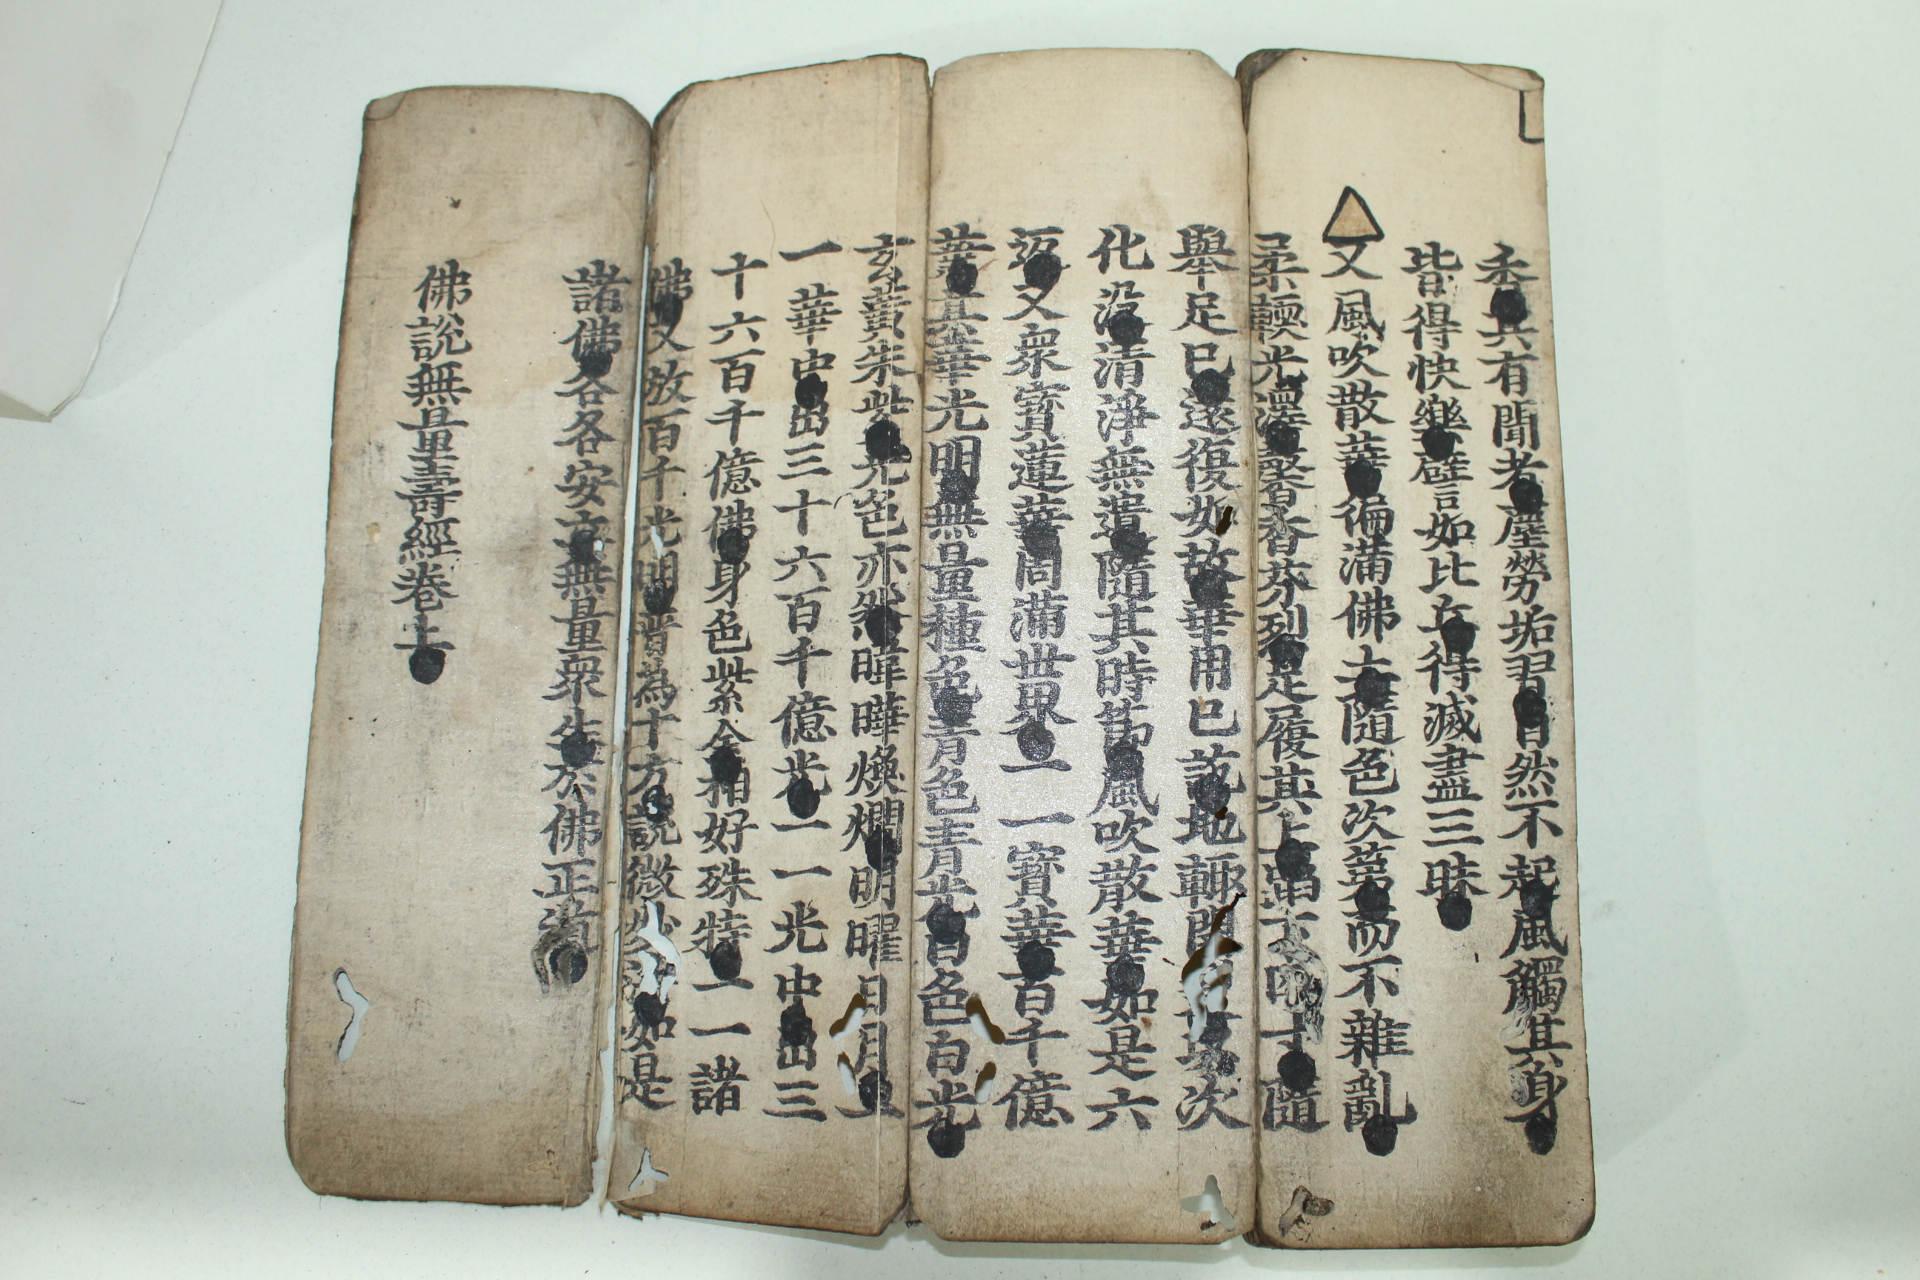 香其有聞者塵勞垢習自然不起風觸其身
皆得快樂譬如比丘得滅盡三昧
又風吹散華徧滿佛土隨色次第而不雜亂
柔輭光澤馨香芬列足履其上 下四寸隨
舉足已還復如故華用已訖地輙開 其次
化沒清淨無遺隨其時節風吹散華如是六
返又衆寶蓮華周滿世界一一寶華百千億
葉其華光明無量種色青色青光白色白光
玄黃朱紫光色亦然暐曄煥爛明曜日月一
一華中出三十六百千億光一一光中出三
十六百千億佛身色紫金相好殊特一一諸
佛又放百千光明普為十方說微妙 如是
諸佛各各安立無量衆生於佛正道
佛說無量壽經卷上